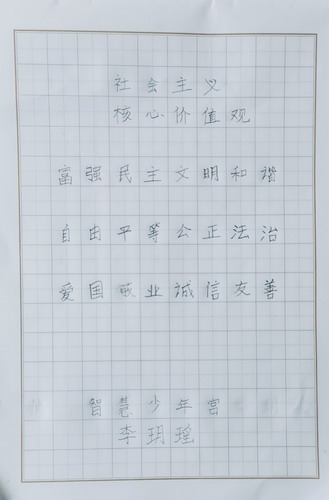 社会主义
核心价值观
富强民主文明和谐
自由平等公正法治
爱国敬业诚信友善
智慧少年宫
李玥瑶